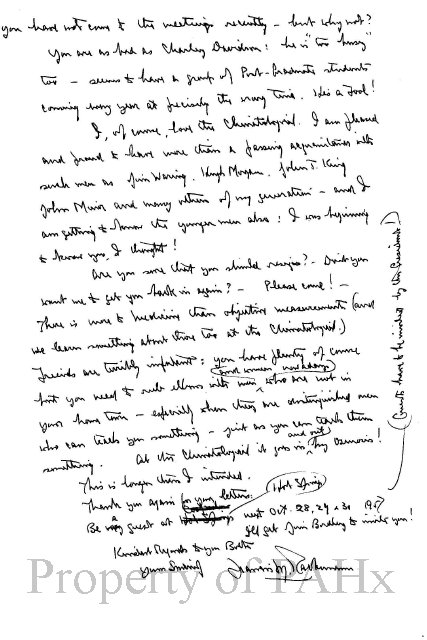 you have not come to the meetings recently - but why not?
You are as bad as Charley Davidson: he is "too busy"
too - seems to have a group of Post-Graduate students
coming every year at precisely the wrong time. He's a Fool!
I, of course, love the Climatological. I am pleased
and proud to have more than a passing acquaintance with
such men as Jim Waring, Hugh Morgan, John T. King
John Minor and many others of my generation - and I
am getting to know the younger men also. I was beginning
to know you, I thought!
Are you sure that you should resign? - Don't you
want me to get you back in again? - Please come! -
There is more to Medicine than objective measurements (and
we learn something about those too at the Climatological.)
Friends are terribly important: you have plenty of course
but you need to rub elbows with men, who are not in
(and women nowadays)
your home town - especially when they are distinguished men
who can teach you something - just as you can teach them
something. At the Climatological it goes in and out by Osmosis!
This is longer than I intended.
Thank you again for your letter.
Be a guest at Hot Springs next Oct. 28, 29 & 30 1967
I'll get Jim Bordley to invite you!
(Guests have to be invited by the President!)
Kindest Regards to you Both
Yours Sincerely
Property of PAHx